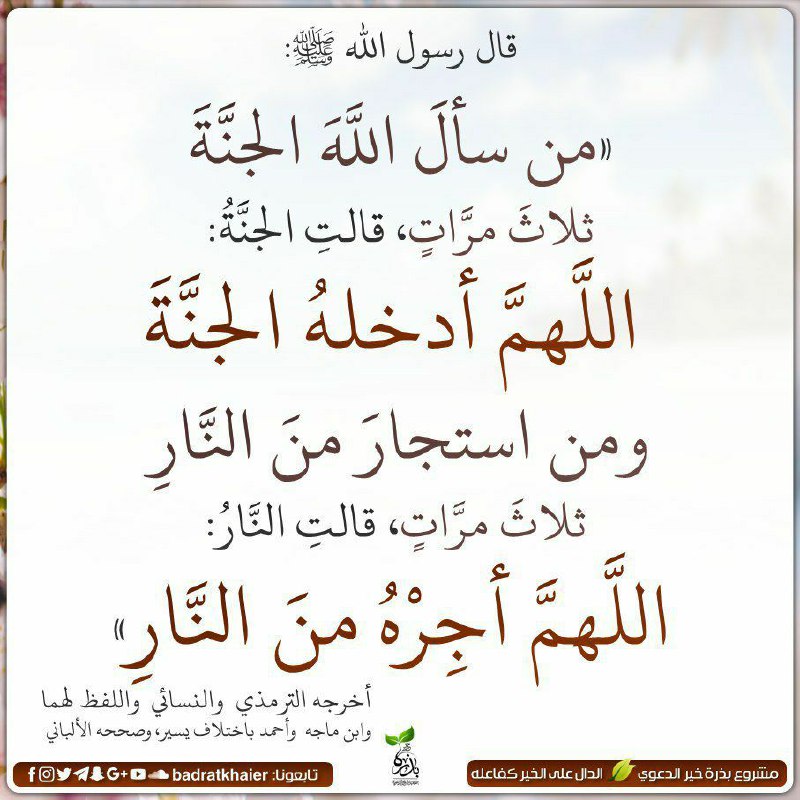 قال رسول الله ﷺ:
«من سألَ اللَّهَ الجنَّةَ
ثلاثَ مرَّاتٍ، قالتِ الجنَّةُ:
اللَّهمَّ أدخلهُ الجنَّةَ
ومن استجارَ منَ النَّارِ
ثلاثَ مرَّاتٍ، قالتِ النَّارُ:
اللَّهمَّ أجِرْهُ منَ النَّارِ»
أخرجه الترمذي والنسائي واللفظ لهما
وابن ماجه وأحمد باختلاف يسير، وصححه الألباني
بذرة
مشروع بذرة خير الدعوي الدال على الخير كفاعله
تابعونا: badratkhaier